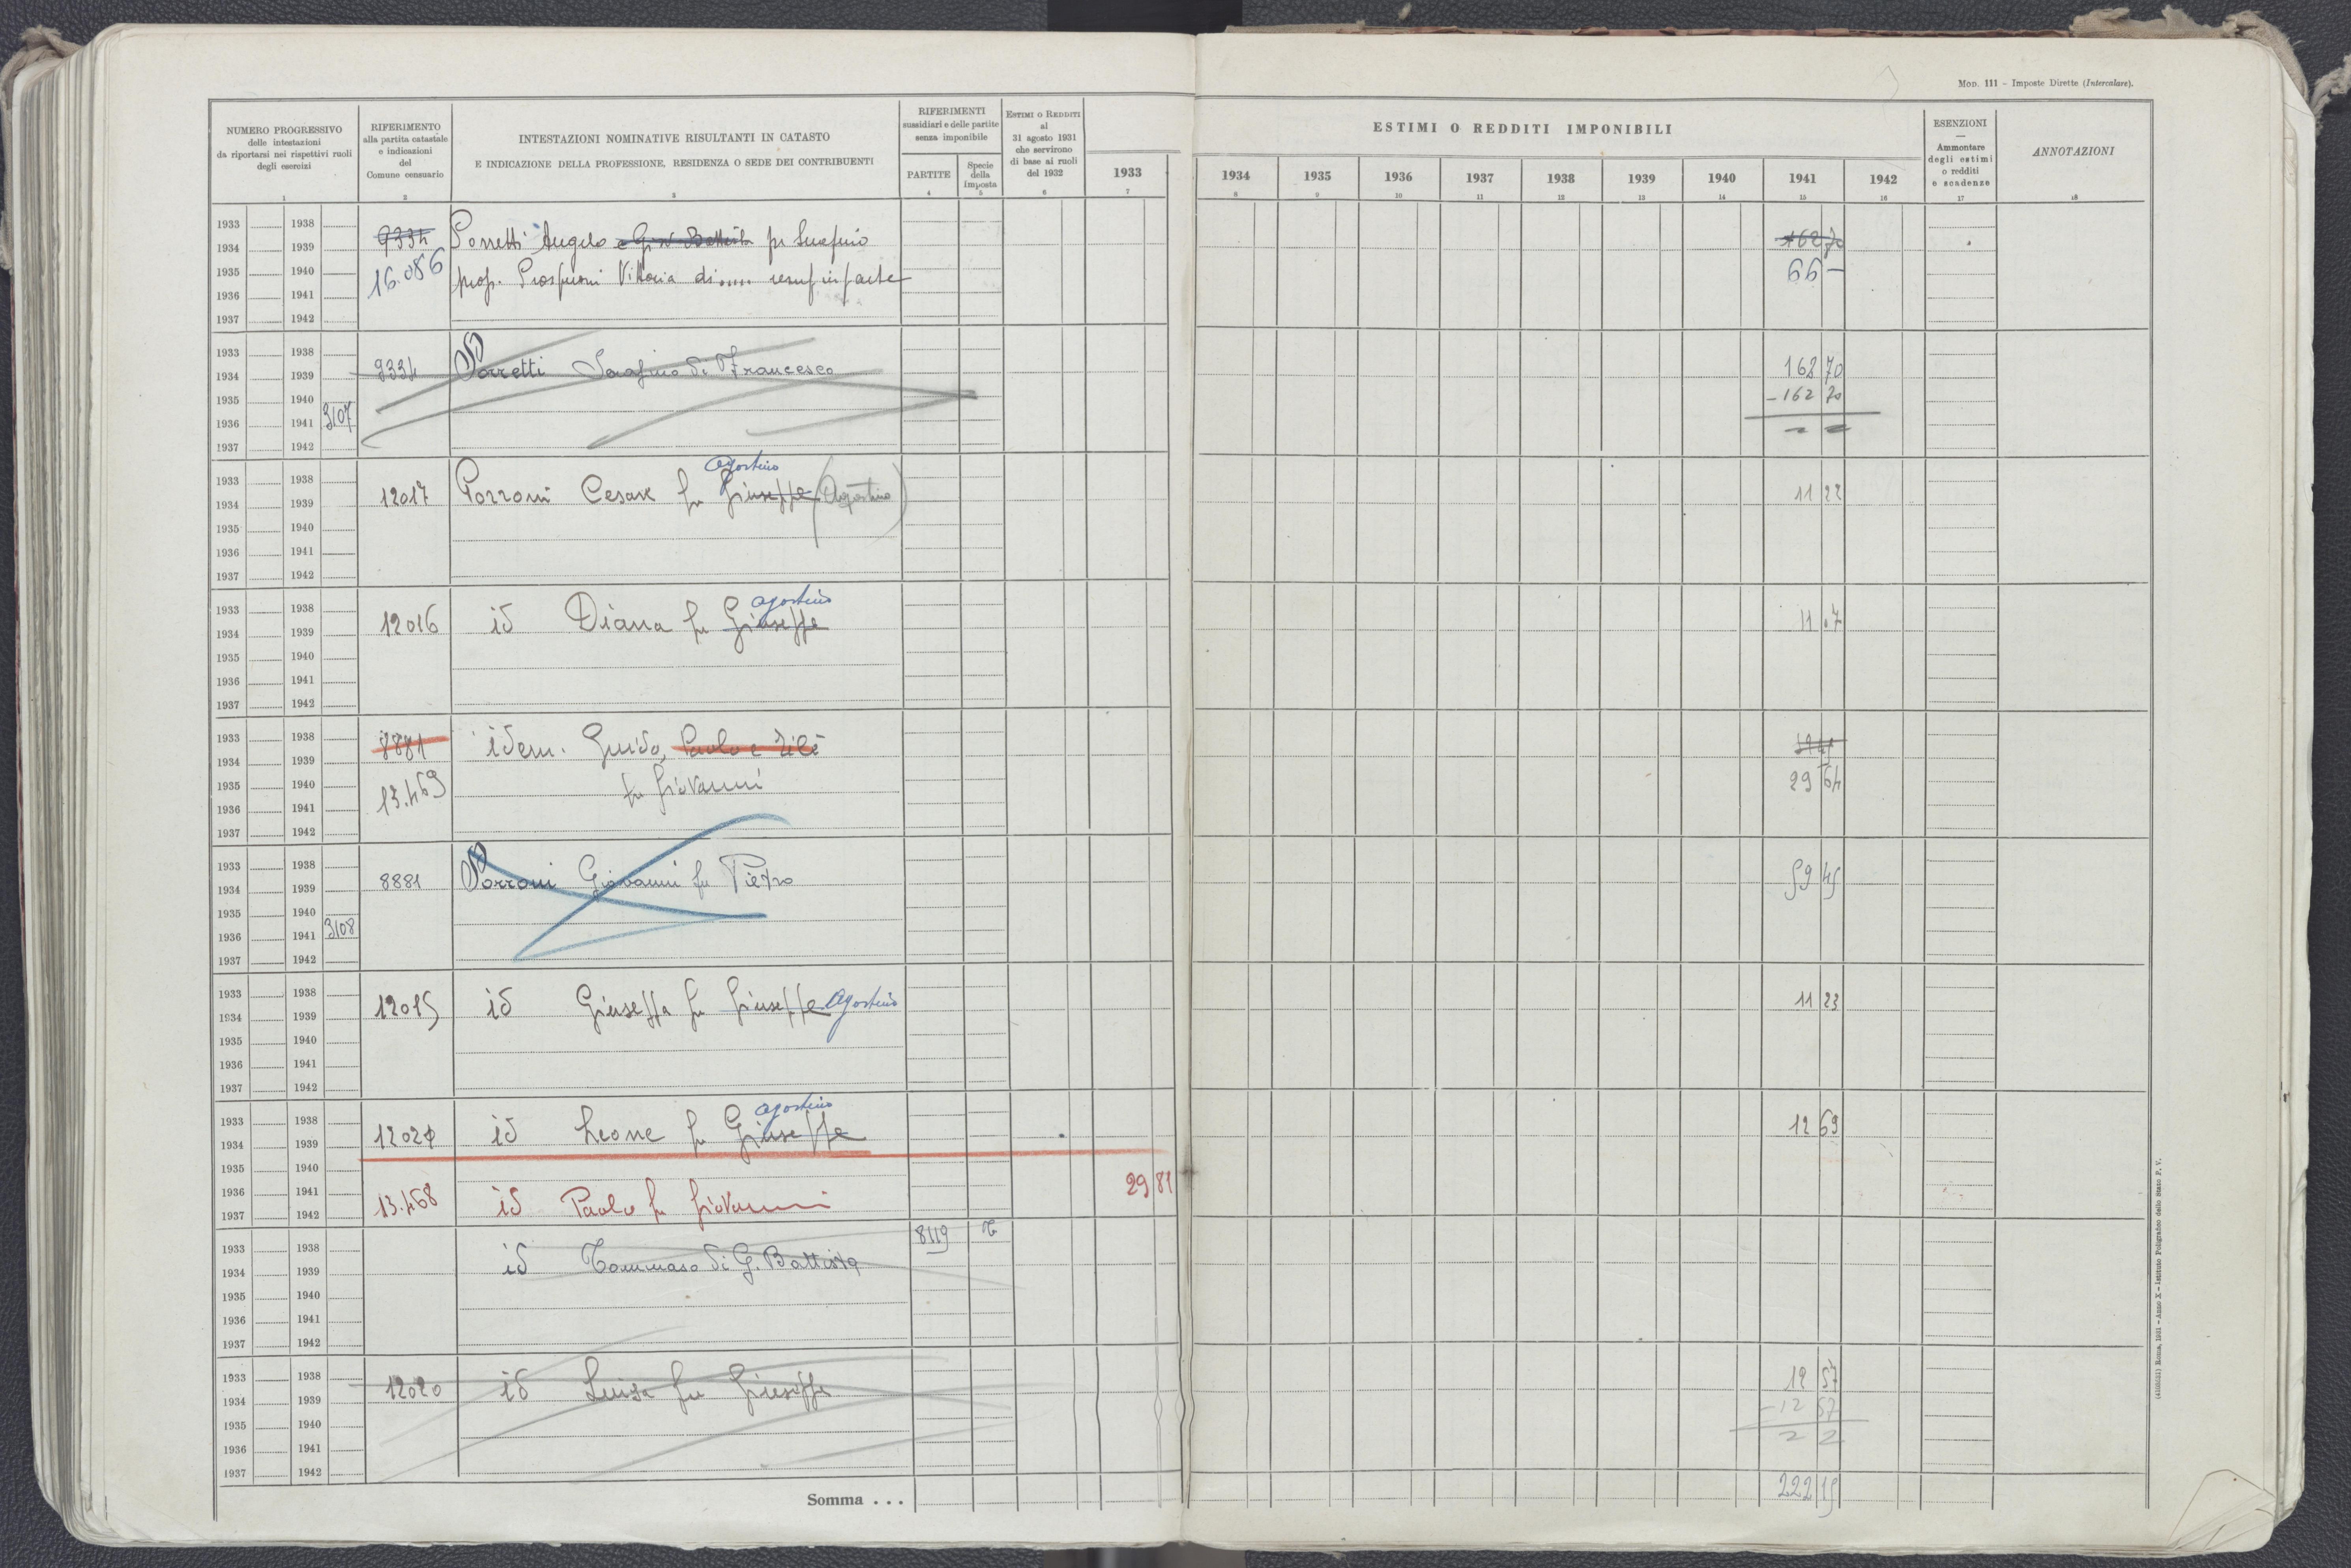 Mod. 111 - Imposte Dirette (Intercalare).
NUMERO PROGRESSIVO
delle intestazioni
da riportarsi nei rispettivi ruoli
degli esercizi
1
RIFERIMENTO
alla partita catastale
e indicazioni
del
Comune censuario
2
INTESTAZIONI NOMINATIVE RISULTANTI IN CATASTO
E INDICAZIONE DELLA PROFESSIONE, RESIDENZA O SEDE DEI CONTRIBUENTI
3
RIFERIMENTI
sussidiari e delle partite
senza imponibile
PARTITE
4
Specie
della
imposta
5
ESTIMI O REDDITI
al
31 agosto 1931
che servirono
di base ai ruoli
del 1932
6
1933
7
ESTIMI O REDDITI IMPONIBILI
1934 1935 1936 1937 1938 1939 1940 1941 1942
8 9 10 11 12 13 14 15 16
ESENZIONI
—
Ammontare
degli estimi
o redditi
e scadenze
17
ANNOTAZIONI
18
1933 1938
1934 1939 9334 Porretti Angelo e Gio Battista fu Serafino 162 70
1935 1940 16.086 prop. Prosperoni Vittoria di..... usuf in parte 66 —
1936 1941
1937 1942
1933 1938
1934 1939 9334 Porretti Serafino di Francesco 162 70
1935 1940 - 162 70
1936 1941 3107
1937 1942
agostino
1933 1938
1934 1939 12017 Porroni Cesare fu Giuseppe (Agostino) 11 22
1935 1940
1936 1941
1937 1942
agostino
1933 1938
1934 1939 12016 id Diana fu Giuseppe 11 07
1935 1940
1936 1941
1937 1942
1933 1938
1934 1939 8881 idem. Guido, Paolo e
1935 1940 13.469 fu Giovanni 29 64
1936 1941
1937 1942
1933 1938
1934 1939 8881 Porroni Giovanni fu Pietro 59 45
1935 1940
1936 1941 3108
1937 1942
1933 1938
1934 1939 12015 id Giuseppa fu Giuseppe Agostino 11 23
1935 1940
1936 1941
1937 1942
agostino
1933 1938
1934 1939 12021 id Leone fu Giuseppe 12 69
1935 1940
1936 1941
1937 1942 13.468 id Paolo fu Giovanni 29 81
8119 T
1933 1938
1934 1939 id Tommaso di G. Battista
1935 1940
1936 1941
1937 1942
1933 1938
1934 1939 12020 id Luisa fu Giuseppe 12 57
1935 1940 - 12 57
1936 1941
1937 1942
Somma . . . 222 15
Roma, 1931 - Anno X - Istituto Poligrafico dello Stato P. V.